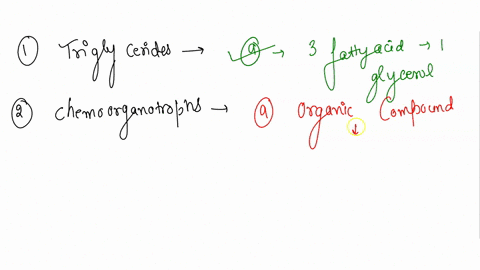 ① Triglycerides → ⓐ → 3 fatty acid → 1
glycerol
② Chemoorganotrophs → ⓐ Organic Compound
↓